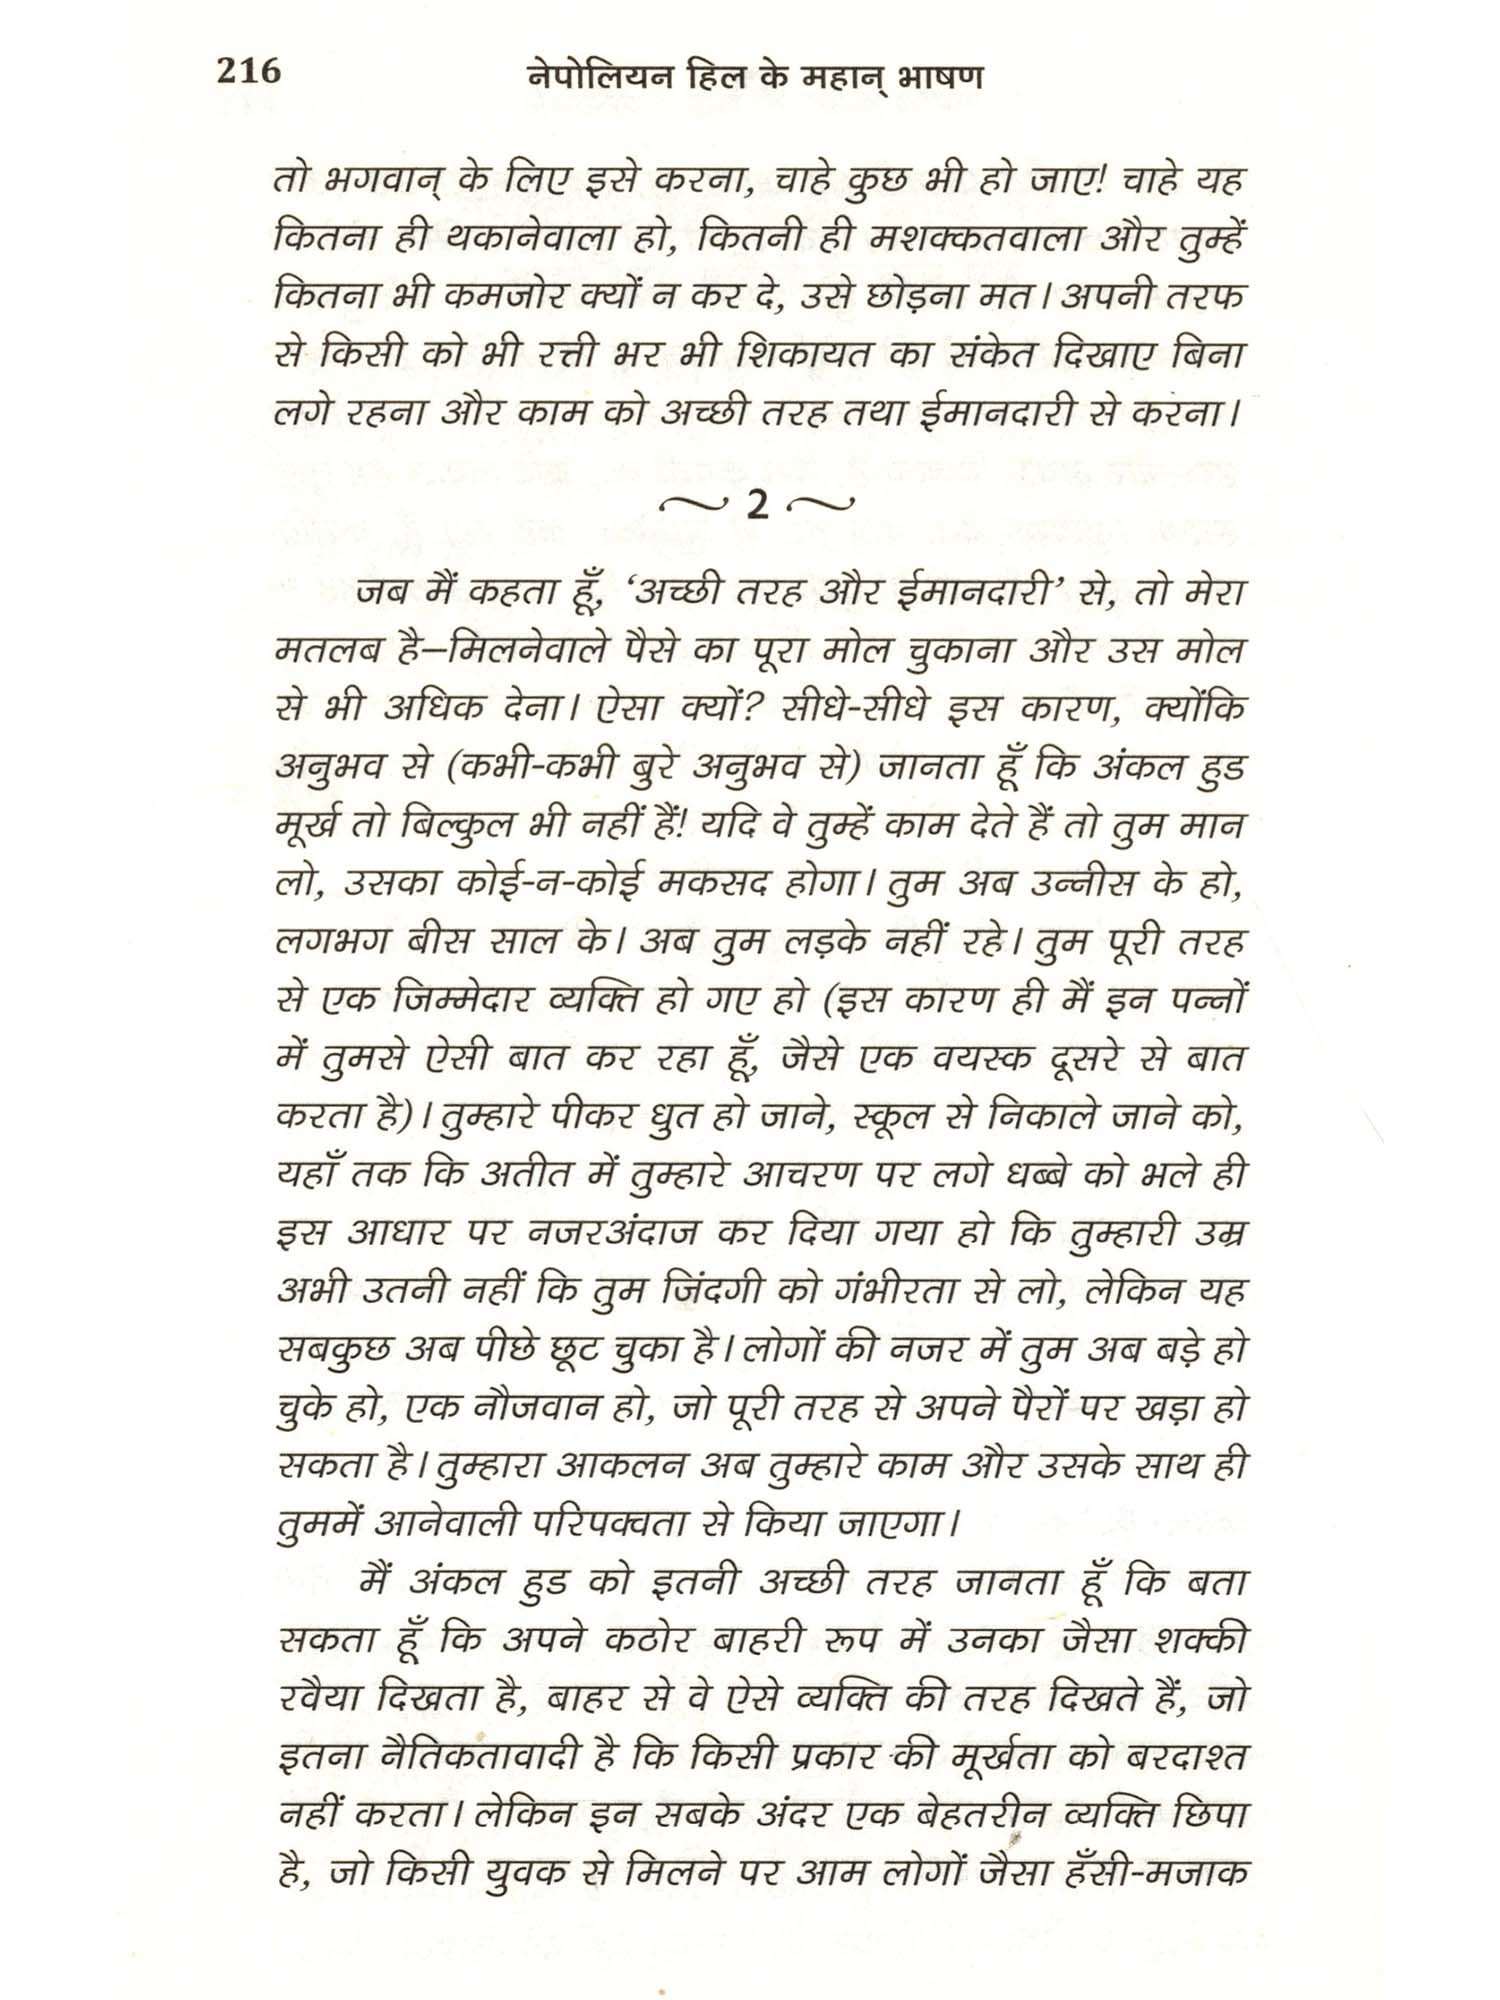 216
नेपोलियन हिल के महान् भाषण
तो भगवान् के लिए इसे करना, चाहे कुछ भी हो जाए! चाहे यह
कितना ही थकानेवाला हो, कितनी ही मशक्कतवाला और तुम्हें
कितना भी कमजोर क्यों न कर दे, उसे छोड़ना मत। अपनी तरफ
से किसी को भी रत्ती भर भी शिकायत का संकेत दिखाए बिना
लगे रहना और काम को अच्छी तरह तथा ईमानदारी से करना।
~ 2 ~
जब मैं कहता हूँ, ‘अच्छी तरह और ईमानदारी’ से, तो मेरा
मतलब है—मिलनेवाले पैसे का पूरा मोल चुकाना और उस मोल
से भी अधिक देना। ऐसा क्यों? सीधे-सीधे इस कारण, क्योंकि
अनुभव से (कभी-कभी बुरे अनुभव से) जानता हूँ कि अंकल हुड
मूर्ख तो बिल्कुल भी नहीं हैं! यदि वे तुम्हें काम देते हैं तो तुम मान
लो, उसका कोई-न-कोई मकसद होगा। तुम अब उन्नीस के हो,
लगभग बीस साल के। अब तुम लड़के नहीं रहे। तुम पूरी तरह
से एक जिम्मेदार व्यक्ति हो गए हो (इस कारण ही मैं इन पन्नों
में तुमसे ऐसी बात कर रहा हूँ, जैसे एक वयस्क दूसरे से बात
करता है)। तुम्हारे पीकर धुत हो जाने, स्कूल से निकाले जाने को,
यहाँ तक कि अतीत में तुम्हारे आचरण पर लगे धब्बे को भले ही
इस आधार पर नजरअंदाज कर दिया गया हो कि तुम्हारी उम्र
अभी उतनी नहीं कि तुम जिंदगी को गंभीरता से लो, लेकिन यह
सबकुछ अब पीछे छूट चुका है। लोगों की नजर में तुम अब बड़े हो
चुके हो, एक नौजवान हो, जो पूरी तरह से अपने पैरों पर खड़ा हो
सकता है। तुम्हारा आकलन अब तुम्हारे काम और उसके साथ ही
तुममें आनेवाली परिपक्वता से किया जाएगा।
मैं अंकल हुड को इतनी अच्छी तरह जानता हूँ कि बता
सकता हूँ कि अपने कठोर बाहरी रूप में उनका जैसा शक्की
रवैया दिखता है, बाहर से वे ऐसे व्यक्ति की तरह दिखते हैं, जो
इतना नैतिकतावादी है कि किसी प्रकार की मूर्खता को बरदाश्त
नहीं करता। लेकिन इन सबके अंदर एक बेहतरीन व्यक्ति छिपा
है, जो किसी युवक से मिलने पर आम लोगों जैसा हँसी-मजाक